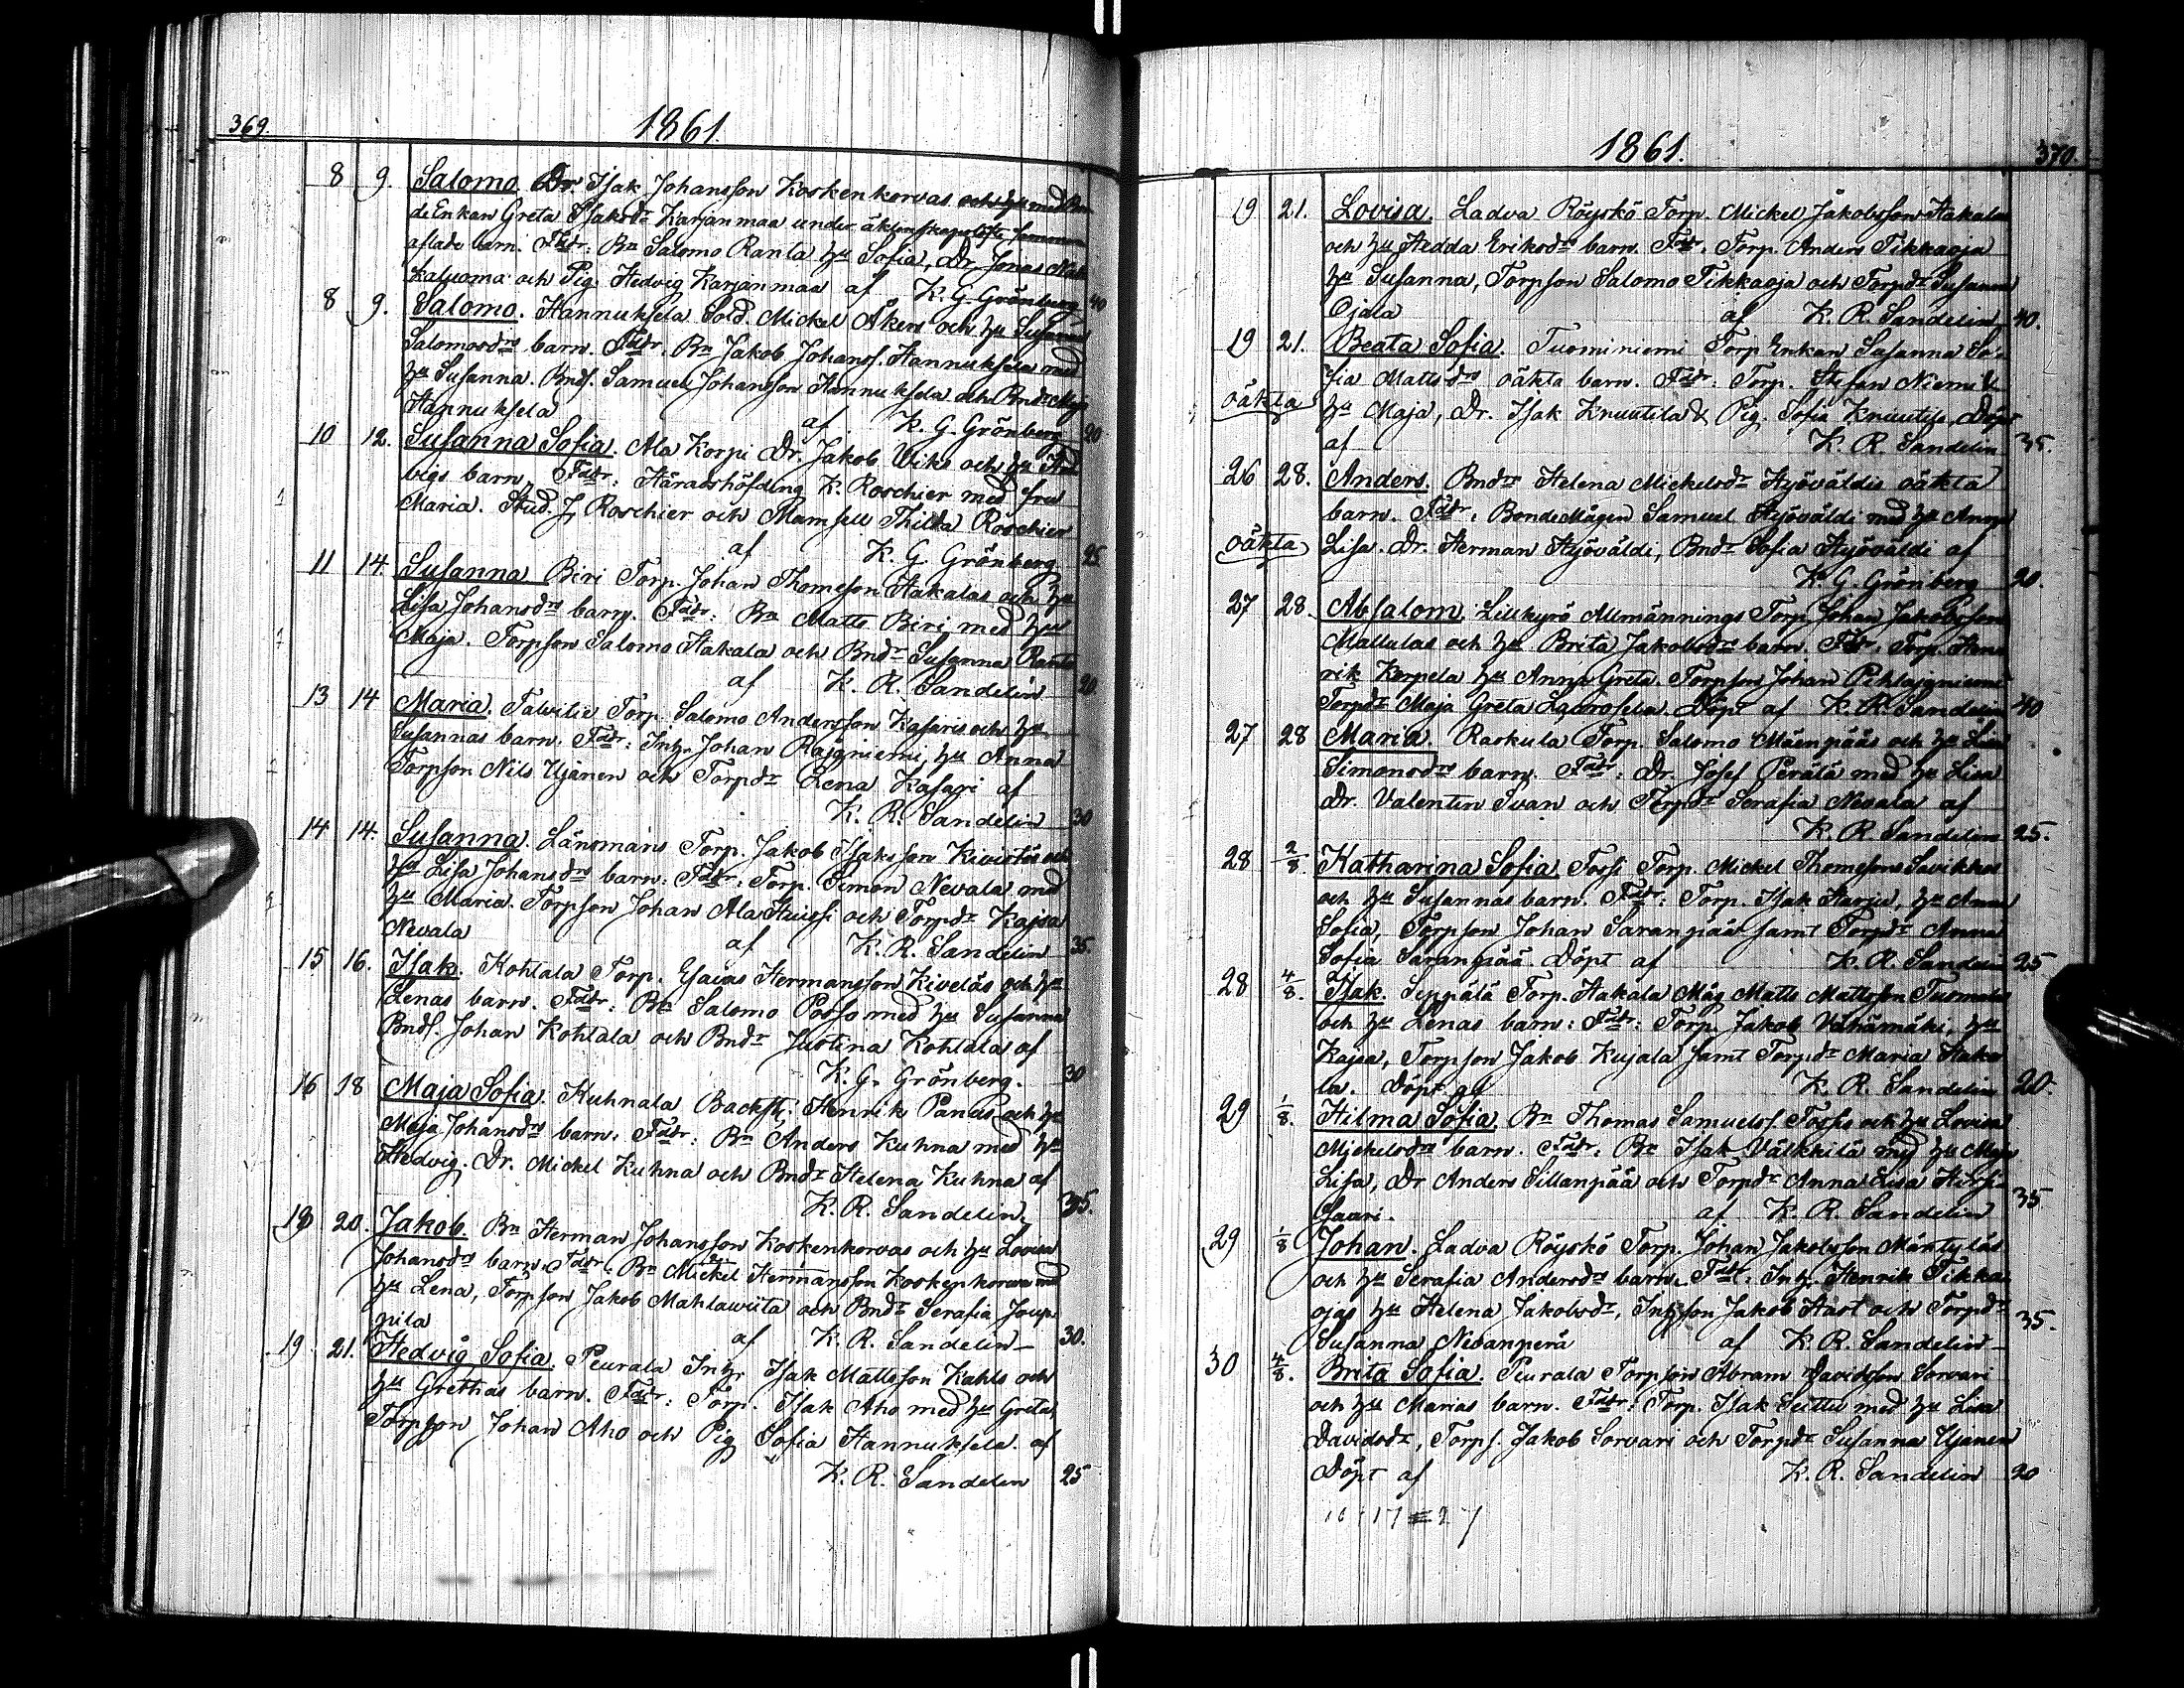 369. 1861.
8 9. Salomo. Dr Isak Johansson Koskenkorvas och hu med Bon
deEnkan Greta Isaksdr Karjanmaa under äktenskapslöfte sammana
aflade barn. Fddr: Bn Salomo Ranta hu Sofia, Dr Jonas
kaluoma och Pig. Hedvig Karjanmaa af K. G. Grönberg 40
8 9. Salomo. Hannuksela Sold. Mickel Åkers och hu Susanna
Salomosdrs barn. Fddr. Bn Jakob Johanss. Hannuksela med
hu Susanna. Bnds. Samuel Johansson Hannuksela och Bndr Maja
Hannuksela af K. G. Grönberg 20
10 12. Susanna Sofia. Ala Korpi Dr. Jakob Wiks och hu Hed
vigs barn. Fddr: Häradshöfding K. Roschier med fru
Maria. Stud. J. Roschier och Mamsell Thilda Roschier
af K. G. Grönberg. 25
11 14. Susanna Biri Torp. Johan Thomsson Hakalas och hu
Lisa Johansdrs barn. Fddr: Bn Matts Biri med hu
Maja. Torpson Salomo Hakala och Bndr Susanna Ranta
af K. R. Sandelin 20.
13 14 Maria. Talvitie Torp. Salomo Andersson Kasaris och hu
Susannas barn. Fddr: Inh. Johan Rajaniemi, hu Anna
Torpson Nils Ujanen och Torpdr Lena Kasari af
K. R. Sandelin 30
14 14. Susanna. Länsmans Torp. Jakob Isaksson Kivistös och
hu Lisa Johansdrs barn: Fddr: Torp. Simon Nevala med
hu Maria. Torpson Johan AlaHuissi och Torpdr Kajsa
Nevala af K. R. Sandelin 35.
15 16. Isak. Kohtala Torp. Esaias Hermansson Kiveläs och hu
Lenas barn. Fddr: Bn Salomo Posso med hu Susanna
Bnds. Johan Kohtala och Bndr Justina Kohtala af
K. G. Grönberg. 30
16 18 Maja Sofia. Kuhnala Backst. Henrik Panulas och hu
Maja Johansdrs barn. Fddr: Bn Anders Kuhna med hu
Hedvig. Dr. Mickel Kuhna och Bndr Helena Kuhna af
K. R. Sandelin. 35.
19 20. Jakob. Bn Herman Johansson Koskenkorvas och hu Lovisa
Johansdrs barn. Fddr. Bn Mickel Hermansson Koskenkorva med
hu Lena, Torpson Jakob Mahlawiita och Bndr Serafia Joup
pila af K. R. Sandelin 30.
19 21. Hedvig Sofia. Peurala Inh. Isak Mattsson Kahls och
hu Grethas barn. Fddr: Torp. Isak Aho med hu Greta,
Torpson Johan Aho och Pig Sofia Hannuksela. af
K. R. Sandelin 25
1861. 370.
19 21. Lovisa. Ladva Röyskö Torp. Mickel Jakobsson Hakalas
och hu Hedda Eriksdrs barn. Fddr. Torp. Anders Tikkaoja
hu Susanna, Torpson Salomo Tikkaoja och Torpdr Susanna
Ojala af K. R. Sandelin 40.
19 21. Beata Sofia. Tuominiemi Torp Enkan Susanna So-
fia Mattsdrs oäkta barn. Fddr: Torp. Stefan Niemi &
oäkta hu Maja, Dr. Isak Knuutila & Pig. Sofia Knuutila, Döpt
af K. R. Sandelin. 35.
26 28. Anders. Bndrs Helena Mickelsdr Hyöväldis oäkta
barn. Fddr: BondeMågen Samuel Hyöväldi med hu Anna
oäkta Lisa. Dr. Herman Hyöväldi, Bndr Sofia Hyöväldi af
K. G. Grönberg 20.
27 28. Absalom. Lillkyrö Allmännings Torp Johan Jakobsson
Mallulas och hu Brita Jakobsdrs barn. Fddr. Torp. Hen
rik Korpela hu Anna Greta. Torpson Johan Pihlajaniemi
Torpdr Maja Greta Laurosela. Döpt af K. R. Sandelin 40
27 28 Maria. Raskula Torp. Salomo Mäenpääs och hu Lisa
Simonsdrs barn. Fddr: Dr. Josef Perälä med hu Lisa
Dr. Valentin Svan och Torpdr Serafia Nevala af
K. R. Sandelin 25.
28 2/8. Katharina Sofia. Torsi Torp. Mickel Thomsson Savikkos
och hu Susannas barn. Fddr: Torp. Isak Harju, hu Anna
Sofia, Torpson Johan Saranpää samt Torpdr Anna
Sofia Saranpää. Döpt af K. R. Sandelin 25
28 4/8. Isak. Seppälä Torp. Hakala Måg Matts Mattsson Tuomelas
och hu Lenas barn: Fddr: Torp. Jakob Vähämäki, hu
Kajsa, Torpson Jakob Kujala samt Torpdr Maria Haka
la. Döpt af K. R. Sandelin 20.
29 1/8. Hilma Sofia. Bn Thomas Samuelss. Forss och hu Lovisa
Mickelsdrs barn. Fddr: Bn Isak Välkkilä med hu Maja
Lisa, Dr Anders Sillanpää och Torpdr Anna Lisa Hirsi-
saari. af K. R. Sandelin 35
29 1/8 Johan. Ladva Röyskö Torp. Johan Jakobsson Mäntyläs
och hu Serafia Andersdrs barn. Fddr. Inh. Henrik Tikka-
ojas hu Helena Jakobsdr, Inhson Jakob Hast och Torpdr
Susanna Nevanperä af K. R. Sandelin 35.
30 4/8. Brita Sofia. Peurala Torpson Abram Davidsson Sorvari
och hu Marias barn. Fddr: Torp. Isak Seittu med hu Lisa
Davidsdr, Torps. Jakob Sorvari och Torpdr Susanna Ujanen
Döpt af K. R. Sandelin 20